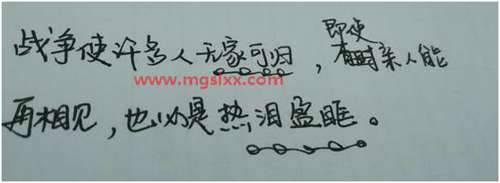 战争使许多人无家可归，即使亲人能
www.mgslxx.com
再相见，也必是热泪盈眶。